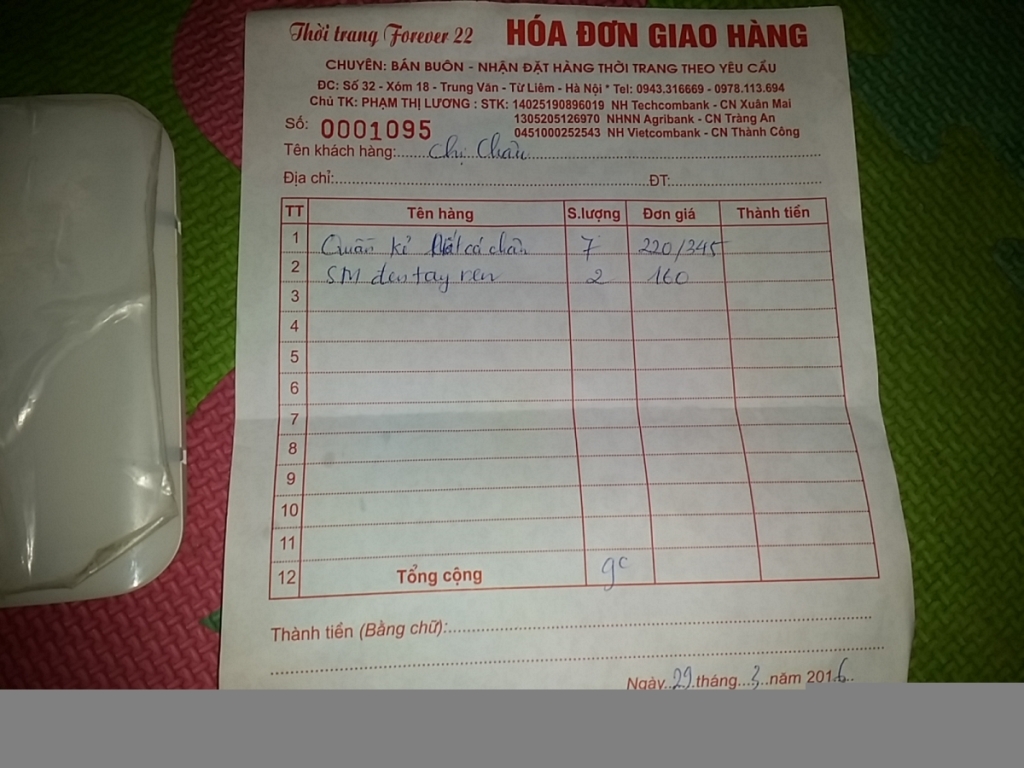 Thời trang Forever 22 HÓA ĐƠN GIAO HÀNG
CHUYÊN: BÁN BUÔN - NHẬN ĐẶT HÀNG THỜI TRANG THEO YÊU CẦU
ĐC: Số 32 - Xóm 18 - Trung Văn - Từ Liêm - Hà Nội * Tel: 0943.316669 - 0978.113.694
Chủ TK: PHẠM THỊ LƯƠNG : STK: 14025190896019 NH Techcombank - CN Xuân Mai
1305205126970 NHNN Agribank - CN Tràng An
Số: 0001095 0451000252543 NH Vietcombank - CN Thành Công
Tên khách hàng: Chị Châu
Địa chỉ: ĐT:
TT Tên hàng S.lượng Đơn giá Thành tiền
1 Quần kẻ cá chân 7 220/345
2 SM đen tay ren 2 160
3
4
5
6
7
8
9
10
11
12 Tổng cộng 9c
Thành tiền (Bằng chữ):
Ngày 29 tháng 3 năm 2016